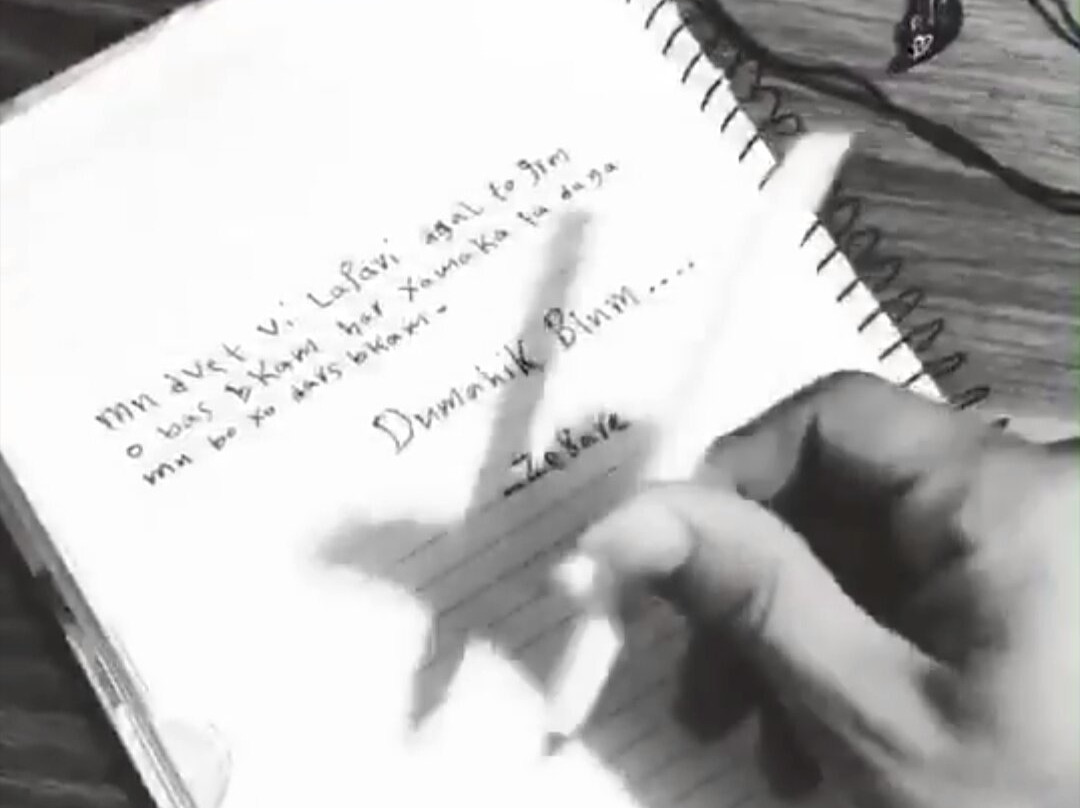 mn dvet vi Lapari agal to Jim
o bas bKam har xamaKa ta daya
mn bo xo dars bkam.
Dumahik Binm....